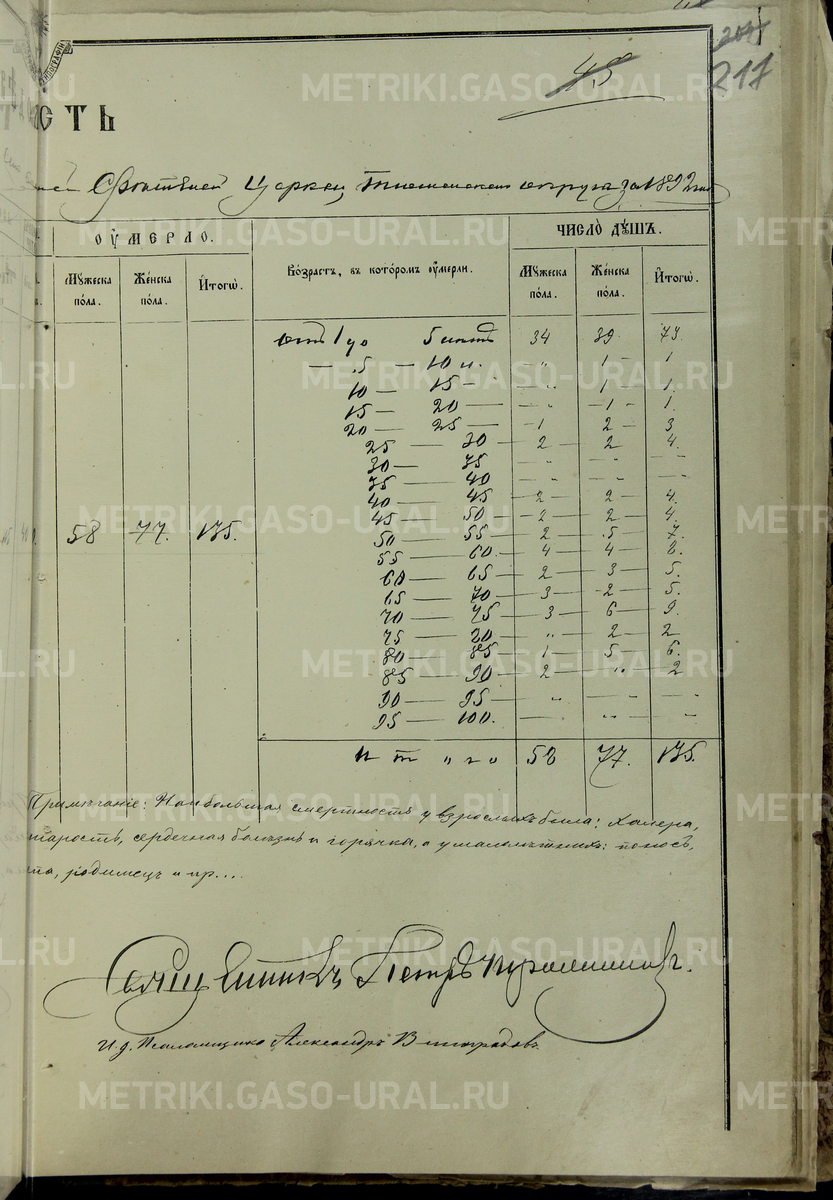 43
217
СТЬ
Церкви Тюменскаго округа за 1892 годъ
ОУМЕРЛО.
Мужеска пола.
Женска пола.
Итогѡ.
Возрастъ, въ которомъ оумерли.
ЧИСЛО ДУШЪ.
Мужеска пола.
Женска пола.
Итогѡ.
отъ 1 до 5 лѣтъ 34 39. 73.
— 5 — 10 л. " 1 1
10 — 15 — " 1 1.
15 — 20 — — 1 — 1.
20 — 25 — 1 2 3
25 — 30 — 2 — 2 4.
30 — 35 — " — " — "
35 — 40 — " — " — "
40 — 45 — 2 — 2 — 4.
45 — 50 — 2 — 2 — 4.
58 77. 135.
50 — 55 — 2 5 — 7.
55 — 60 — 4 — 4 — 8.
60 — 65 — 2 — 3 — 5.
65 — 70 — 3 — 2 — 5.
70 — 75 — 3 — 6 — 9.
75 — 80 — " — 2 — 2
80 — 85 — 1 — 5 6.
85 — 90 — 2 — " — 2
90 — 95 — " — —
95 — 100. — " — "
И т о г о 58 77. 135.
Примѣчаніе: Наибольшая смертность у взрослыхъ была: холера,
старость, сердечная болѣзнь и горячка, а у малолѣтнихъ: поносъ,
родимецъ и пр...
Священникъ Петръ
И. д. Псаломщика Александръ Виноградовъ.
METRIKI.GASO-URAL.RU